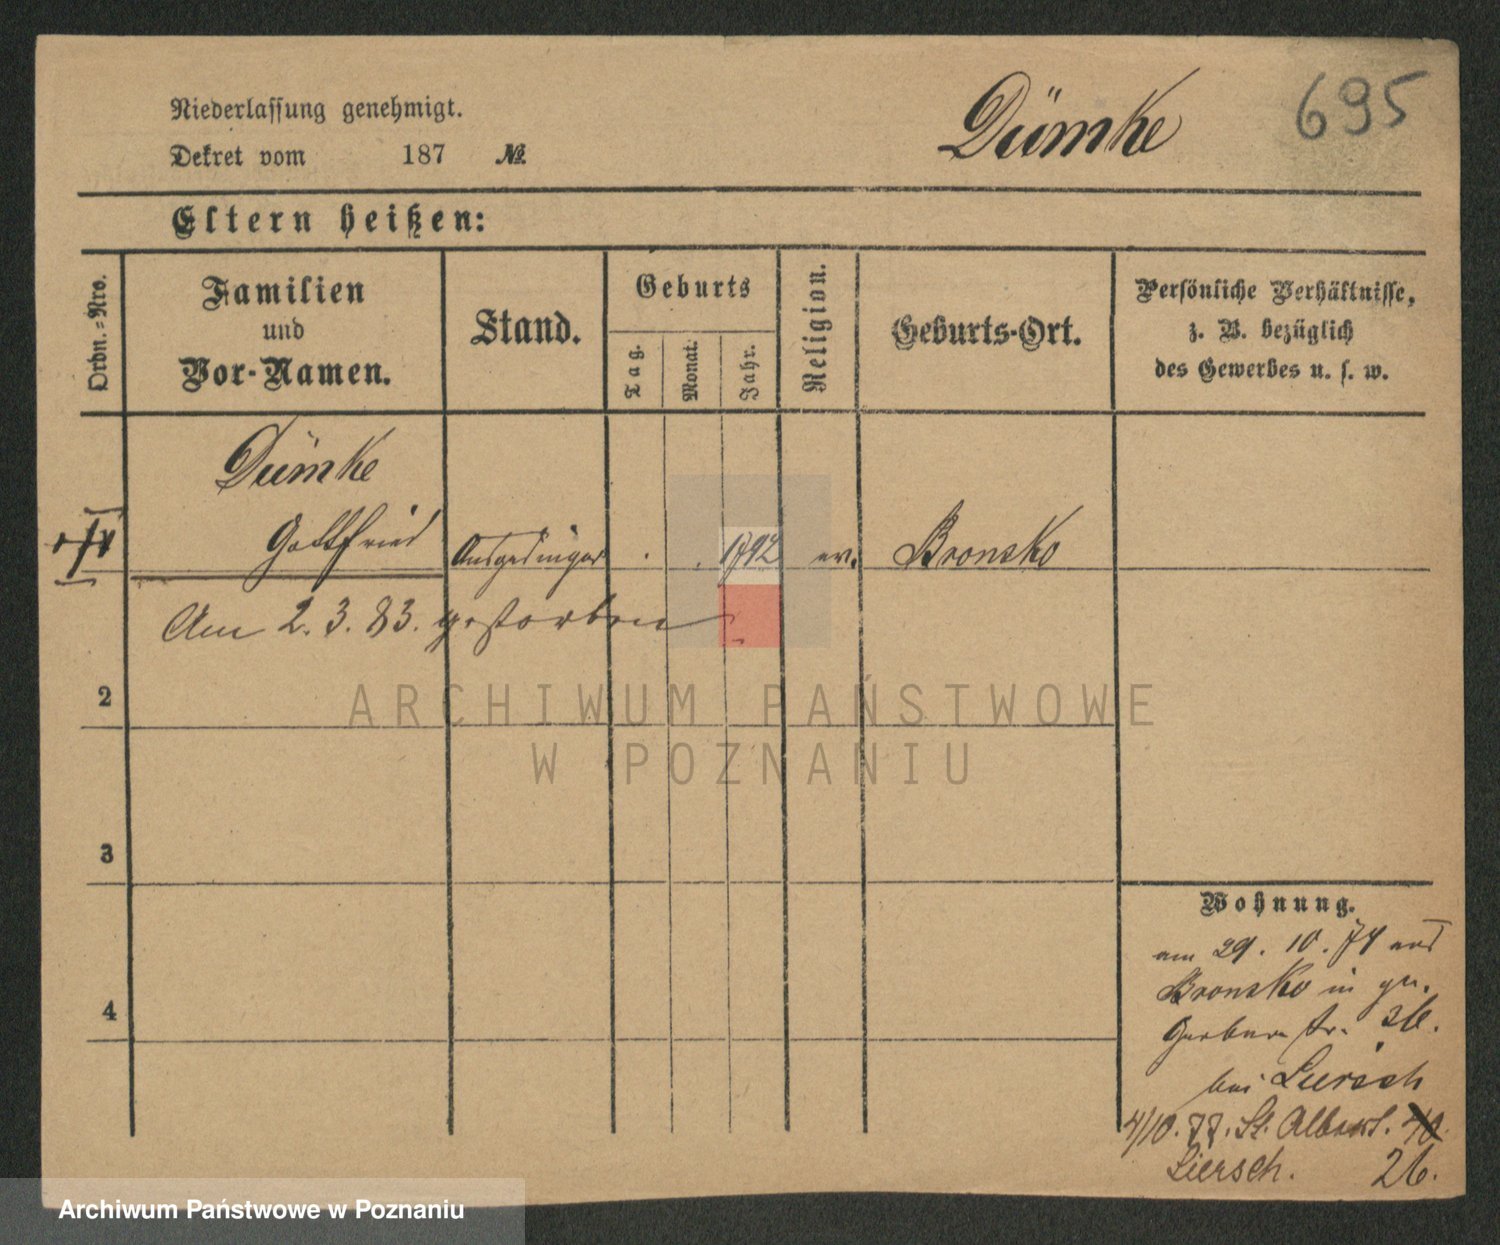 695
Dümke
Niederlassung genehmigt.
Dekret vom 187 №
Eltern heißen:
Ordn.-Nro.
Familien
und
Vor-Namen.
Stand.
Geburts
Tag.
Monat.
Jahr.
Religion.
Geburts-Ort.
Persönliche Verhältnisse,
z. B. bezüglich
des Gewerbes u. s. w.
Dümke
Gottfried Ausgedinger 1792 ev. Bronsko
Am 2. 3. 83. gestorben
2
3
4
Wohnung.
am 29. 10. 74 aus
Bronsko in gr.
Gerber str. 36.
bei Liersch
4/10. 77. St. Adalbert. 40
Liersch. 26.
ARCHIWUM PAŃSTWOWE
W POZNANIU
Archiwum Państwowe w Poznaniu